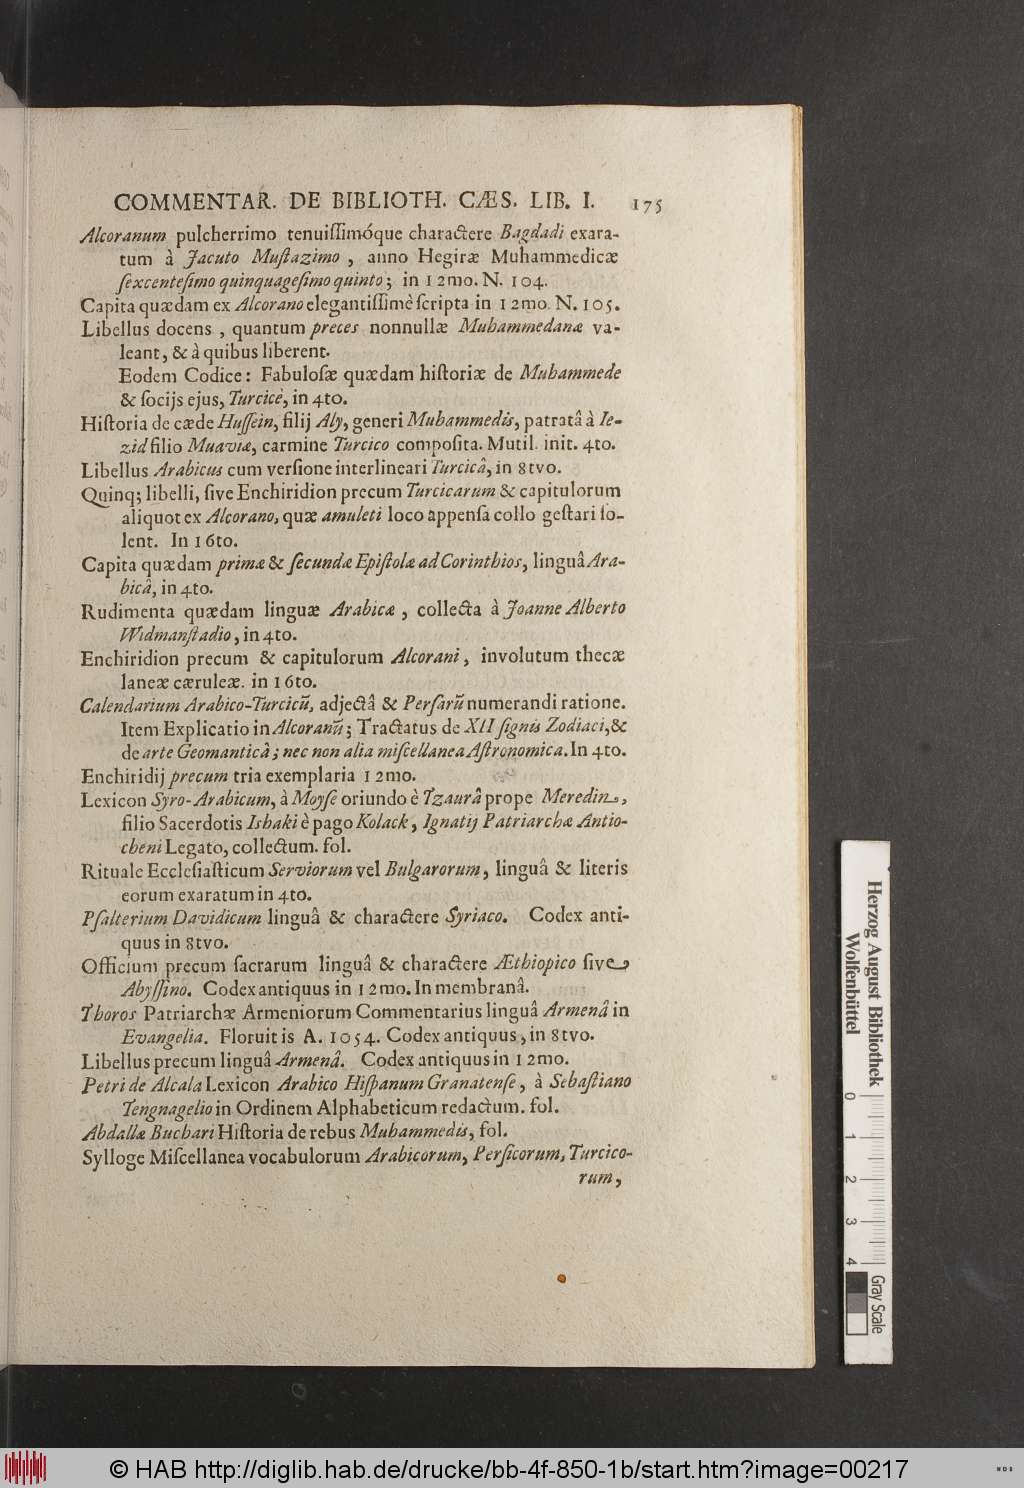 COMMENTAR. DE BIBLIOTH. CÆS. LIB. I. 175
Alcoranum pulcherrimo tenuiſſimóque charactere Bagdadi exara-
tum à Jacuto Muſtazimo , anno Hegiræ Muhammedicæ
ſexcenteſimo quinquageſimo quinto ; in 12mo. N. 104.
Capita quædam ex Alcorano elegantiſſimè ſcripta in 12mo. N. 105.
Libellus docens , quantum preces nonnullæ Muhammedanæ va-
leant, & à quibus liberent.
Eodem Codice: Fabuloſæ quædam hiſtoriæ de Muhammede
& ſocijs ejus, Turcicè, in 4to.
Hiſtoria de cæde Huſſein, filij Aly, generi Muhammedis, patratâ à Ie-
zid filio Muaviæ, carmine Turcico compoſita. Mutil. init. 4to.
Libellus Arabicus cum verſione interlineari Turcicâ, in 8tvo.
Quinq; libelli, ſive Enchiridion precum Turcicarum & capitulorum
aliquot ex Alcorano, quæ amuleti loco appenſa collo geſtari ſo-
lent. In 16to.
Capita quædam primæ & ſecundæ Epiſtolæ ad Corinthios, linguâ Ara-
bicâ, in 4to.
Rudimenta quædam linguæ Arabicæ , collecta à Joanne Alberto
Widmanſtadio, in 4to.
Enchiridion precum & capitulorum Alcorani, involutum thecæ
laneæ cæruleæ. in 16to.
Calendarium Arabico-Turcicũ, adjectâ & Perſarũ numerandi ratione.
Item Explicatio in Alcoranũ; Tractatus de XII ſignis Zodiaci, &
de arte Geomanticâ; nec non alia miſcellanea Aſtronomica. In 4to.
Enchiridij precum tria exemplaria 12mo.
Lexicon Syro-Arabicum, à Moyſe oriundo è Tzaurâ prope Meredin,
filio Sacerdotis Ishaki è pago Kolack, Ignatij Patriarchæ Antio-
cheni Legato, collectum. fol.
Rituale Eccleſiaſticum Serviorum vel Bulgarorum, linguâ & literis
eorum exaratum in 4to.
Pſalterium Davidicum linguâ & charactere Syriaco. Codex anti-
quus in 8tvo.
Officium precum ſacrarum linguâ & charactere Æthiopico ſive
Abyſſino. Codex antiquus in 12mo. In membranâ.
Thoros Patriarchæ Armeniorum Commentarius linguâ Armenâ in
Evangelia. Floruit is A. 1054. Codex antiquus, in 8tvo.
Libellus precum linguâ Armenâ. Codex antiquus in 12mo.
Petri de Alcala Lexicon Arabico Hiſpanum Granatenſe, à Sebaſtiano
Tengnagelio in Ordinem Alphabeticum redactum. fol.
Abdallæ Buchari Hiſtoria de rebus Muhammedis, fol.
Sylloge Miſcellanea vocabulorum Arabicorum, Perſicorum, Turcico-
rum,
Herzog August Bibliothek
Wolfenbüttel
0 1 2 3 4
Gray Scale
© HAB http://diglib.hab.de/drucke/bb-4f-850-1b/start.htm?image=00217